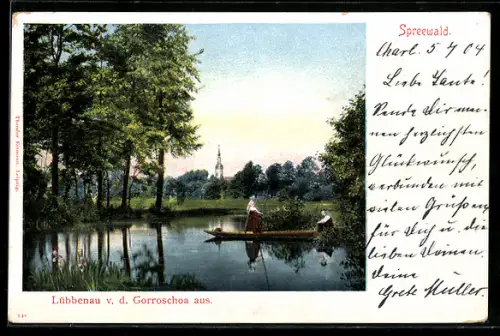 Spreewald.
Charl. 5 7 04
Liebe Tante!
Sende Dir mei-
nen herzlichsten
Glückwunsch,
verbunden mit
vielen Grüßen
für Dich u. die
lieben Deinen.
Deine
Grete Müller.
Theodor Leipzig.
Lübbenau v. d. Gorroschoa aus.